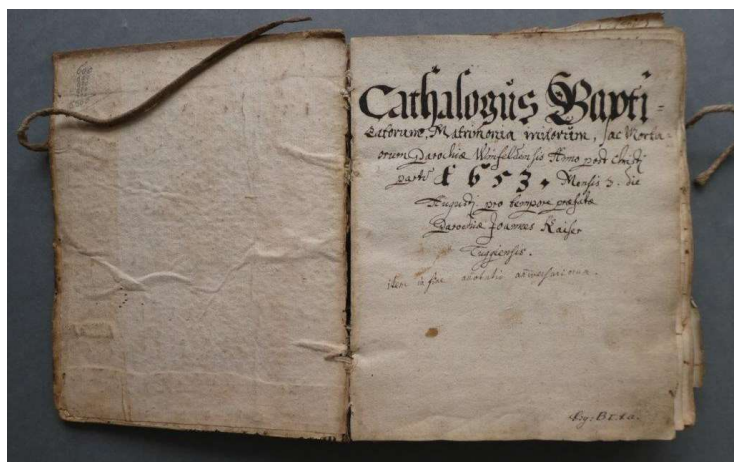 Cathalogus Bapti-
zatorum, Matrimonia initorum, ac Mortu-
orum Parochiæ Winfeldensis Anno post Christi
partū 1653. Mensis 3. die
Augusti. pro tempore præfatæ
Parochiæ Joannes Kaiser
Tuggiensis.
Item in fine annotatio anniversariorum.